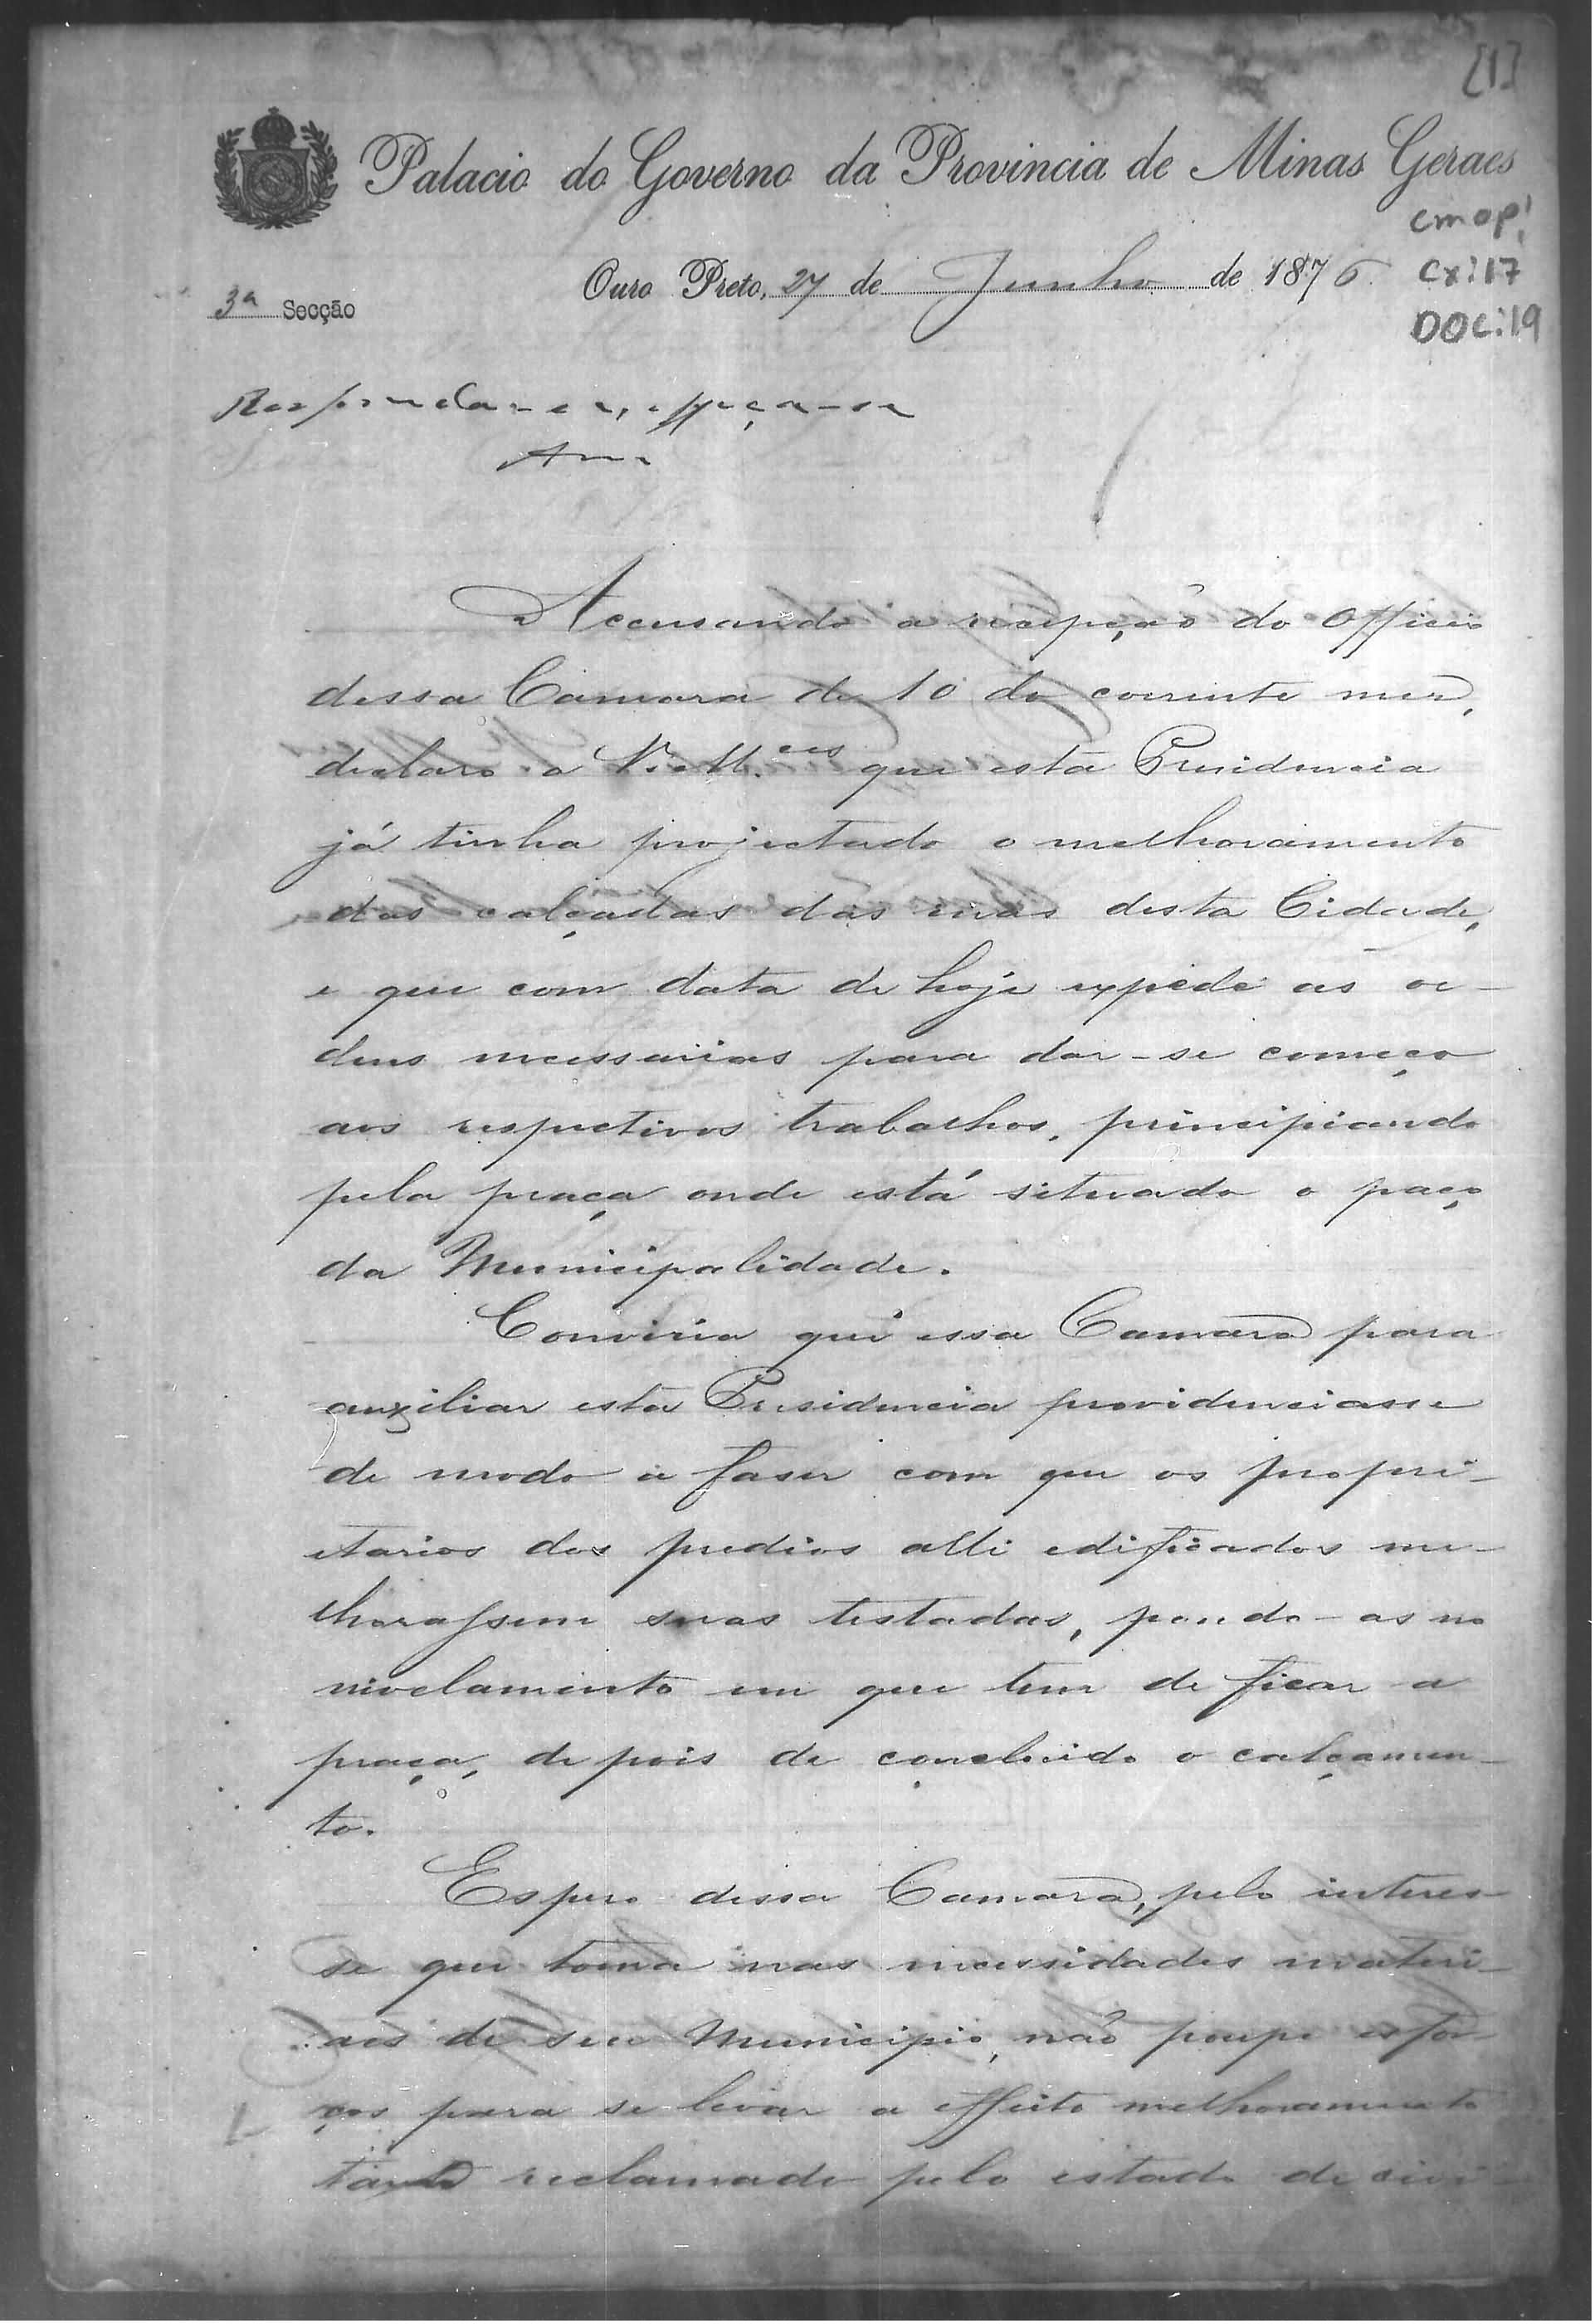 [1]
Palacio do Governo da Provincia de Minas Geraes
cmop!
Ouro Preto, 27 de Junho de 1876
Cx: 17
3ª Secção
DOC: 19
Responda-se, e peça-se
Accusando a recepção do Officio
dessa Camara de 10 do corrente mez,
declaro a V. M.ces que esta Presidencia
já tinha projectado o melhoramento
das calçadas das ruas desta Cidade,
e que com data de hoje expede as or-
dens necessarias para dar-se começo
aos respectivos trabalhos, principiando
pela praça onde está situado o paço
da Municipalidade.
Conviria que essa Camara para
auxiliar esta Presidencia providenciasse
de modo a faser com que os propri-
etarios dos predios alli edificados me-
lhorassem suas testadas, pondo-as no
nivelamento em que tem de ficar a
praça, depois de concluido o calçamen-
to.
Espero dessa Camara, pelo interes-
se que toma nas necessidades materi-
aes de seu Municipio, não poupe esfor-
ços para se levar a effeito melhoramento
tanto reclamado pelo estado de civi-